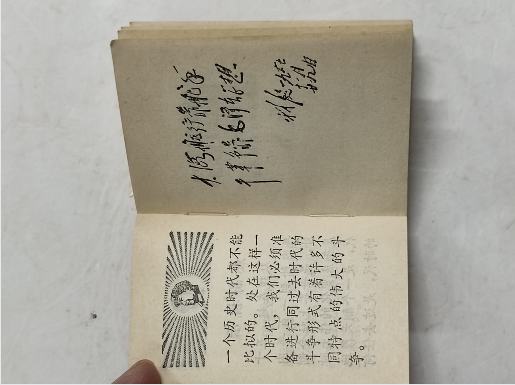 大海航行靠舵手
干革命靠毛泽东思想
林彪
一个历史时代都不能
比拟的。处在这样一
个时代，我们必须准
备进行同过去时代的
斗争形式有着许多不
同特点的伟大的斗
争。